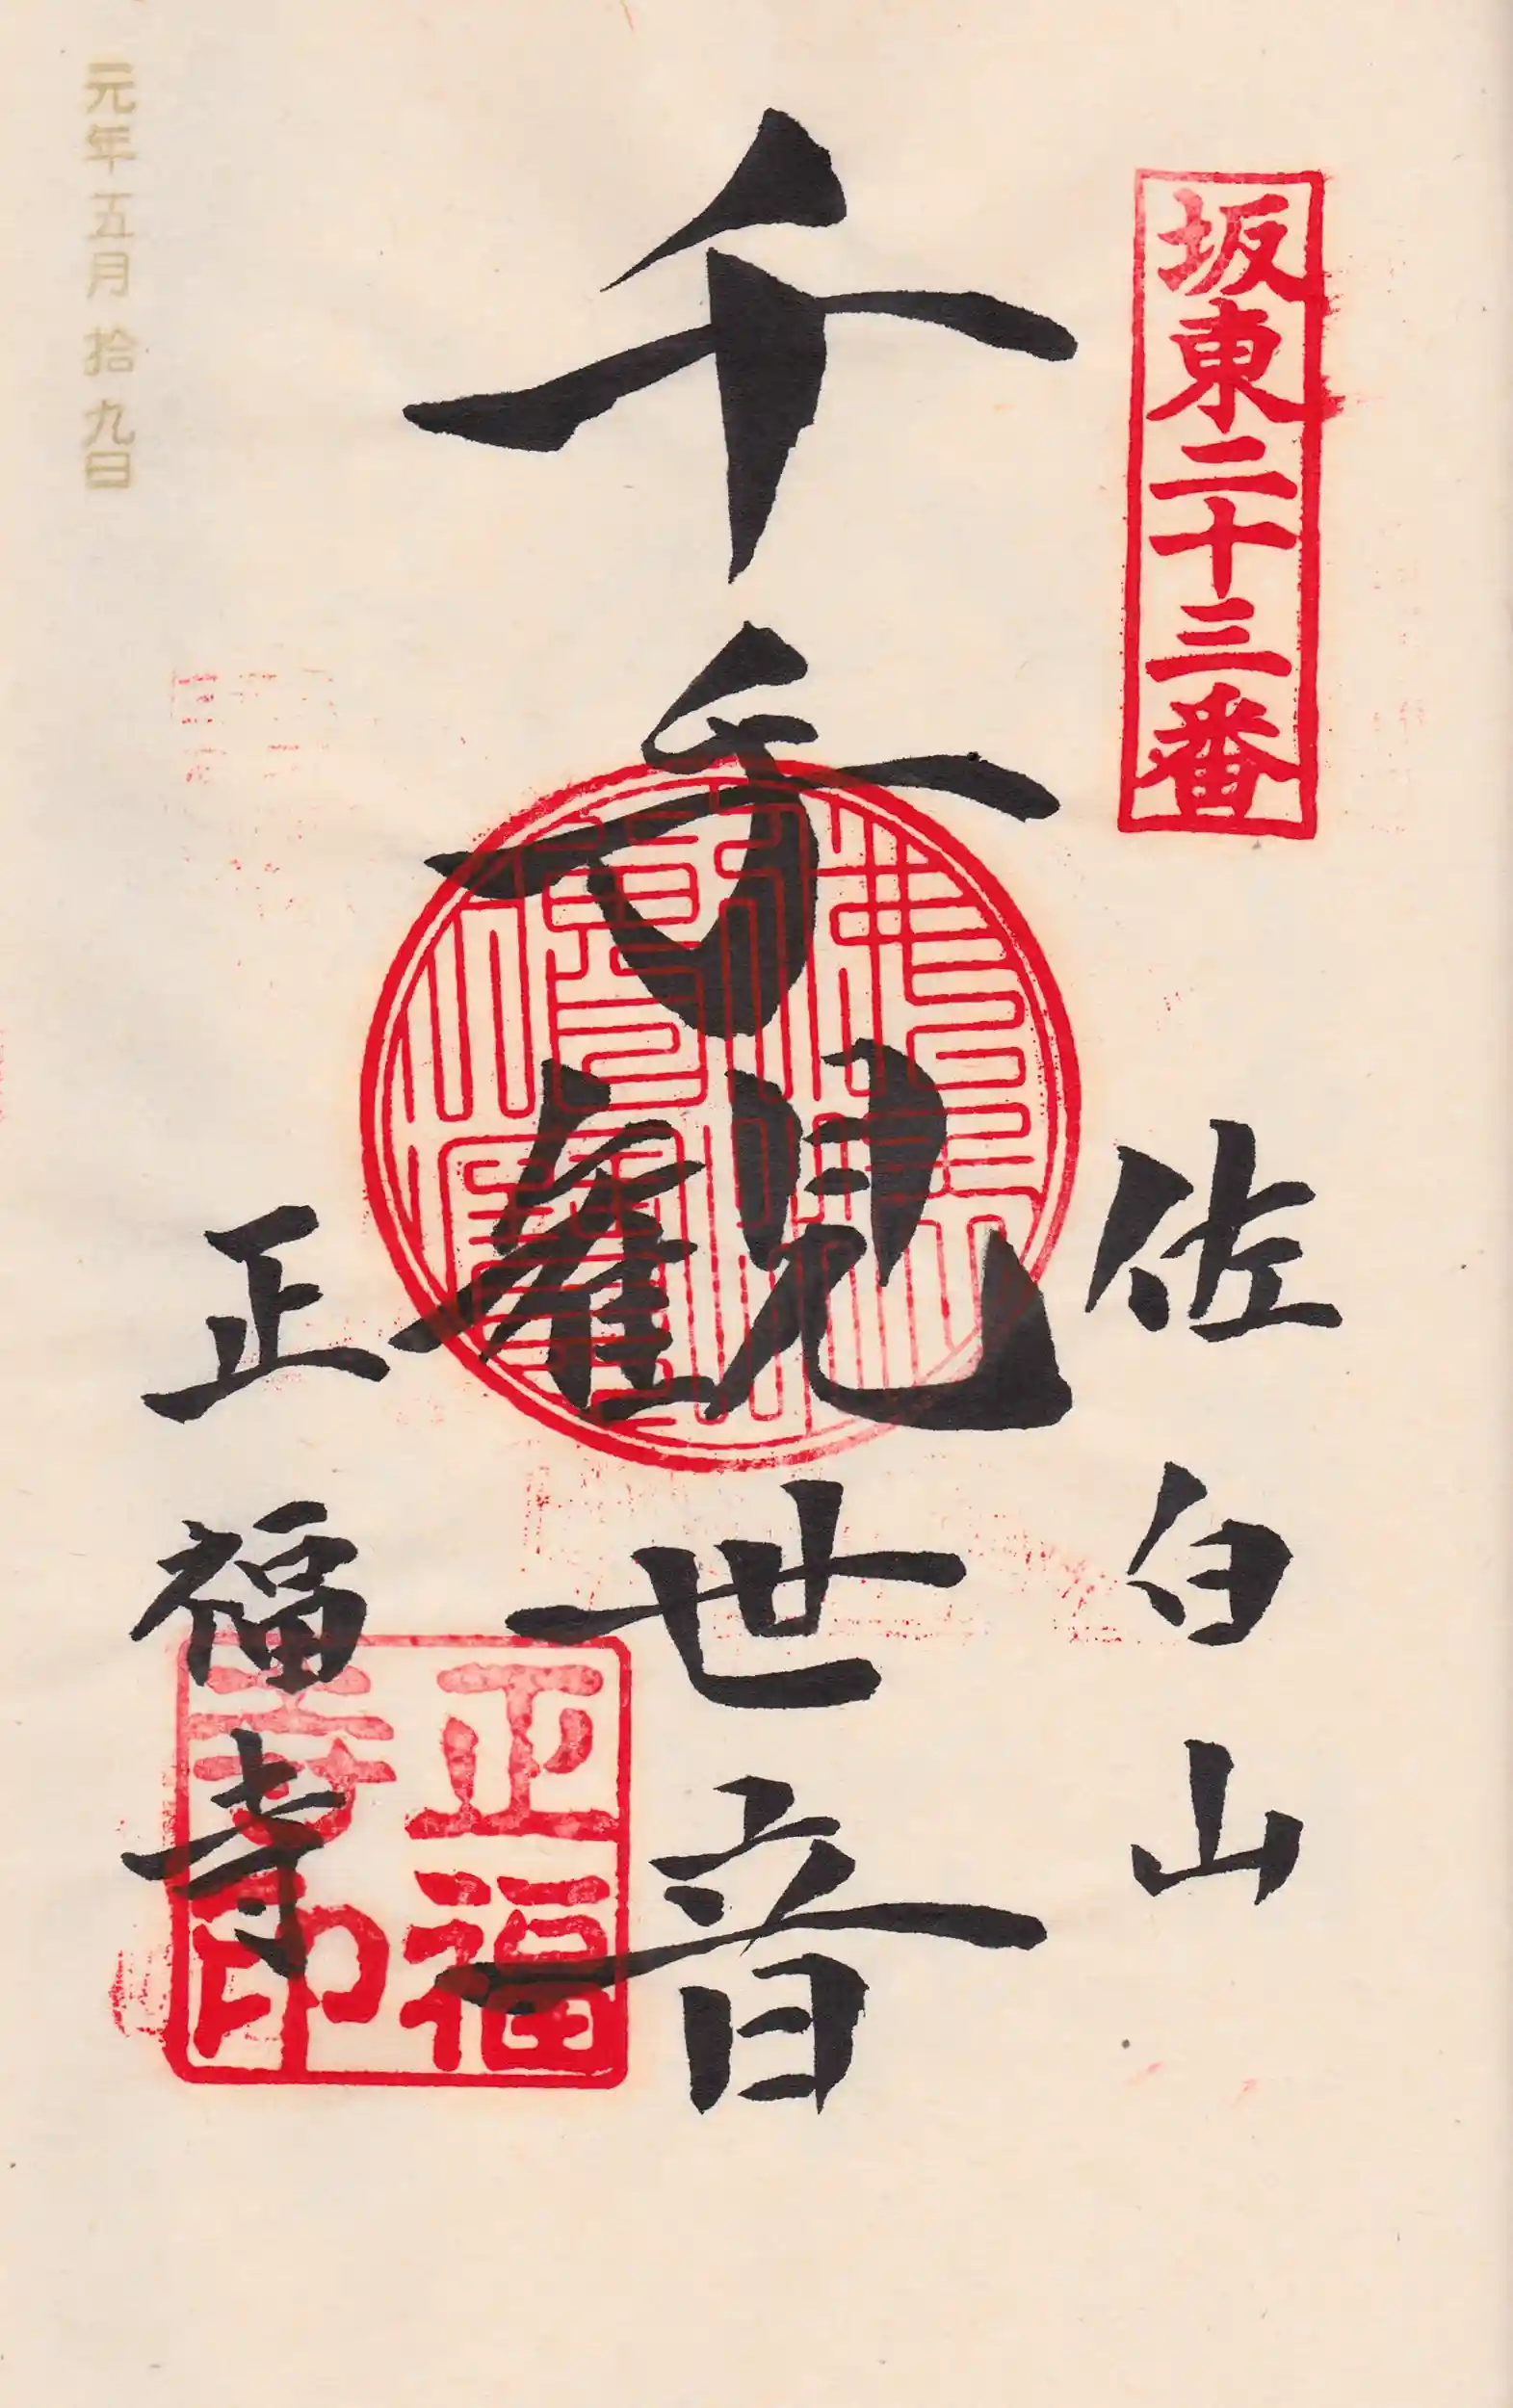 坂東二十三番
佐白山
千手観世音
正福寺
正福寺印
元年五月拾九日